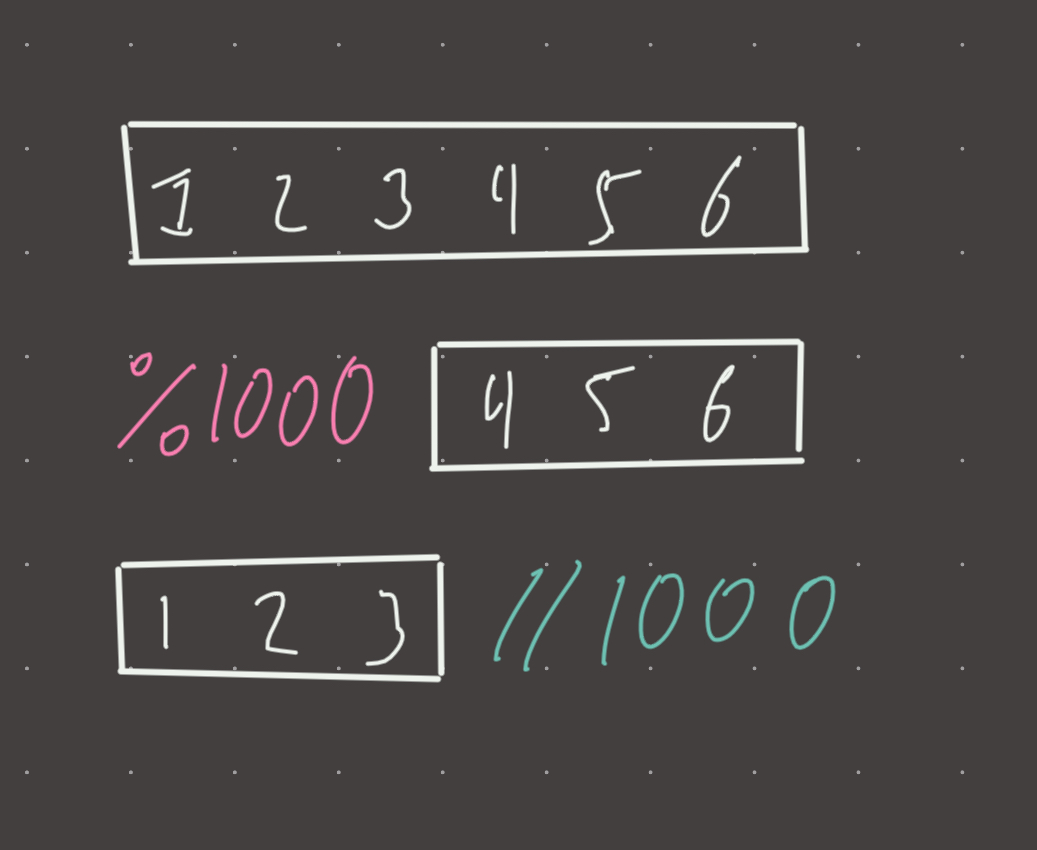 1 2 3 4 5 6
%1000 4 5 6
1 2 3 //1000